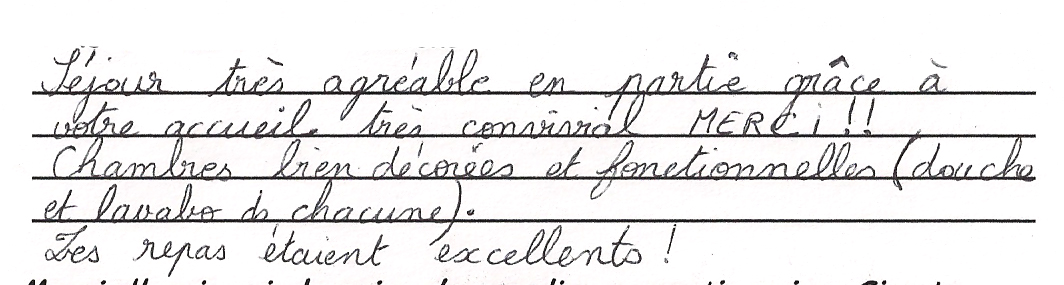 Séjour très agréable en partie grâce à
votre accueil très convivial MERCi !!
Chambres bien décorées et fonctionnelles (douche
et lavabo ds chacune).
Les repas étaient excellents !